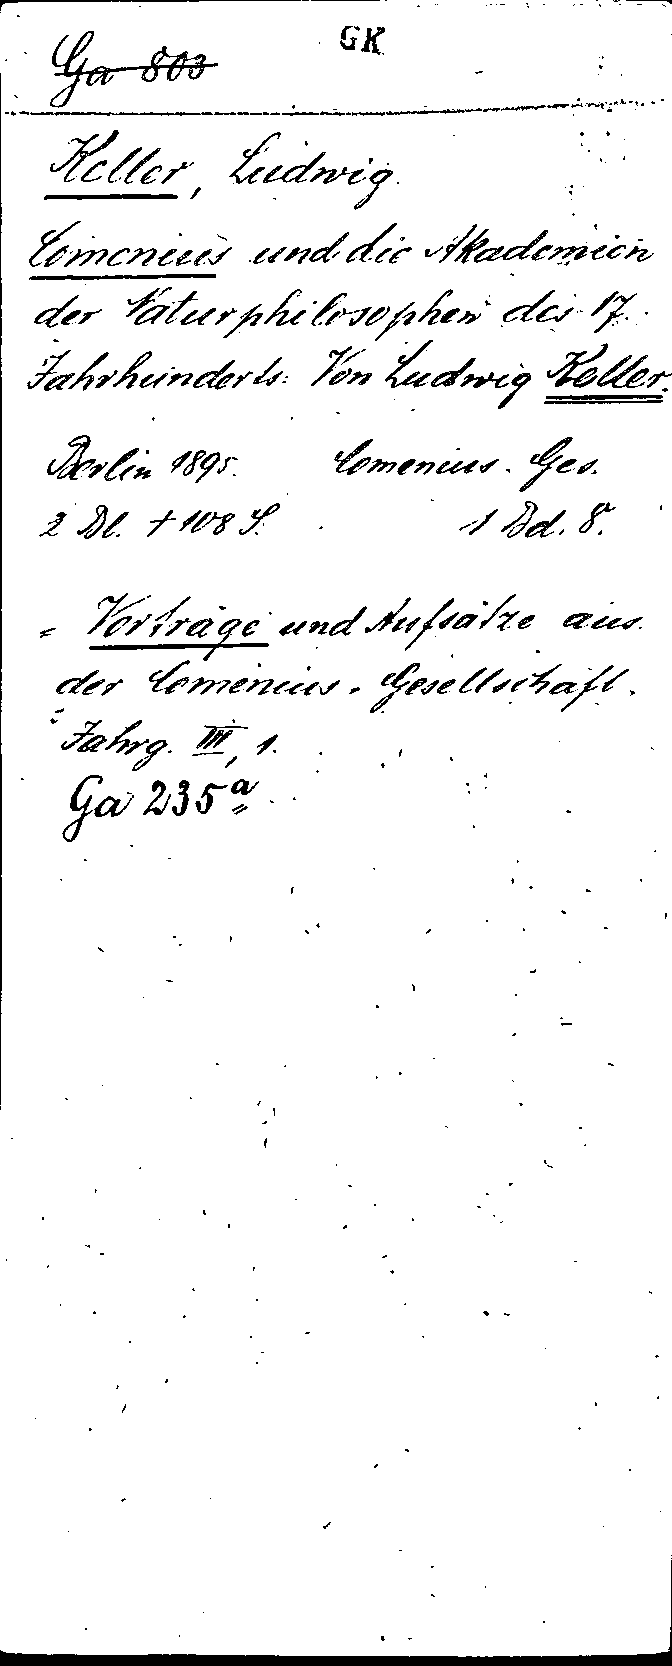 Ga 803
GK
Keller, Ludwig.
Comenius und die Akademien
der Naturphilosophen des 17.
Jahrhunderts. Von Ludwig Keller.
Berlin 1895. Comenius-Ges.
2 Bl. + 108 S. 1 Bd. 8°.
= Vorträge und Aufsätze aus
der Comenius-Gesellschaft.
Jahrg. III, 1.
Ga 235a